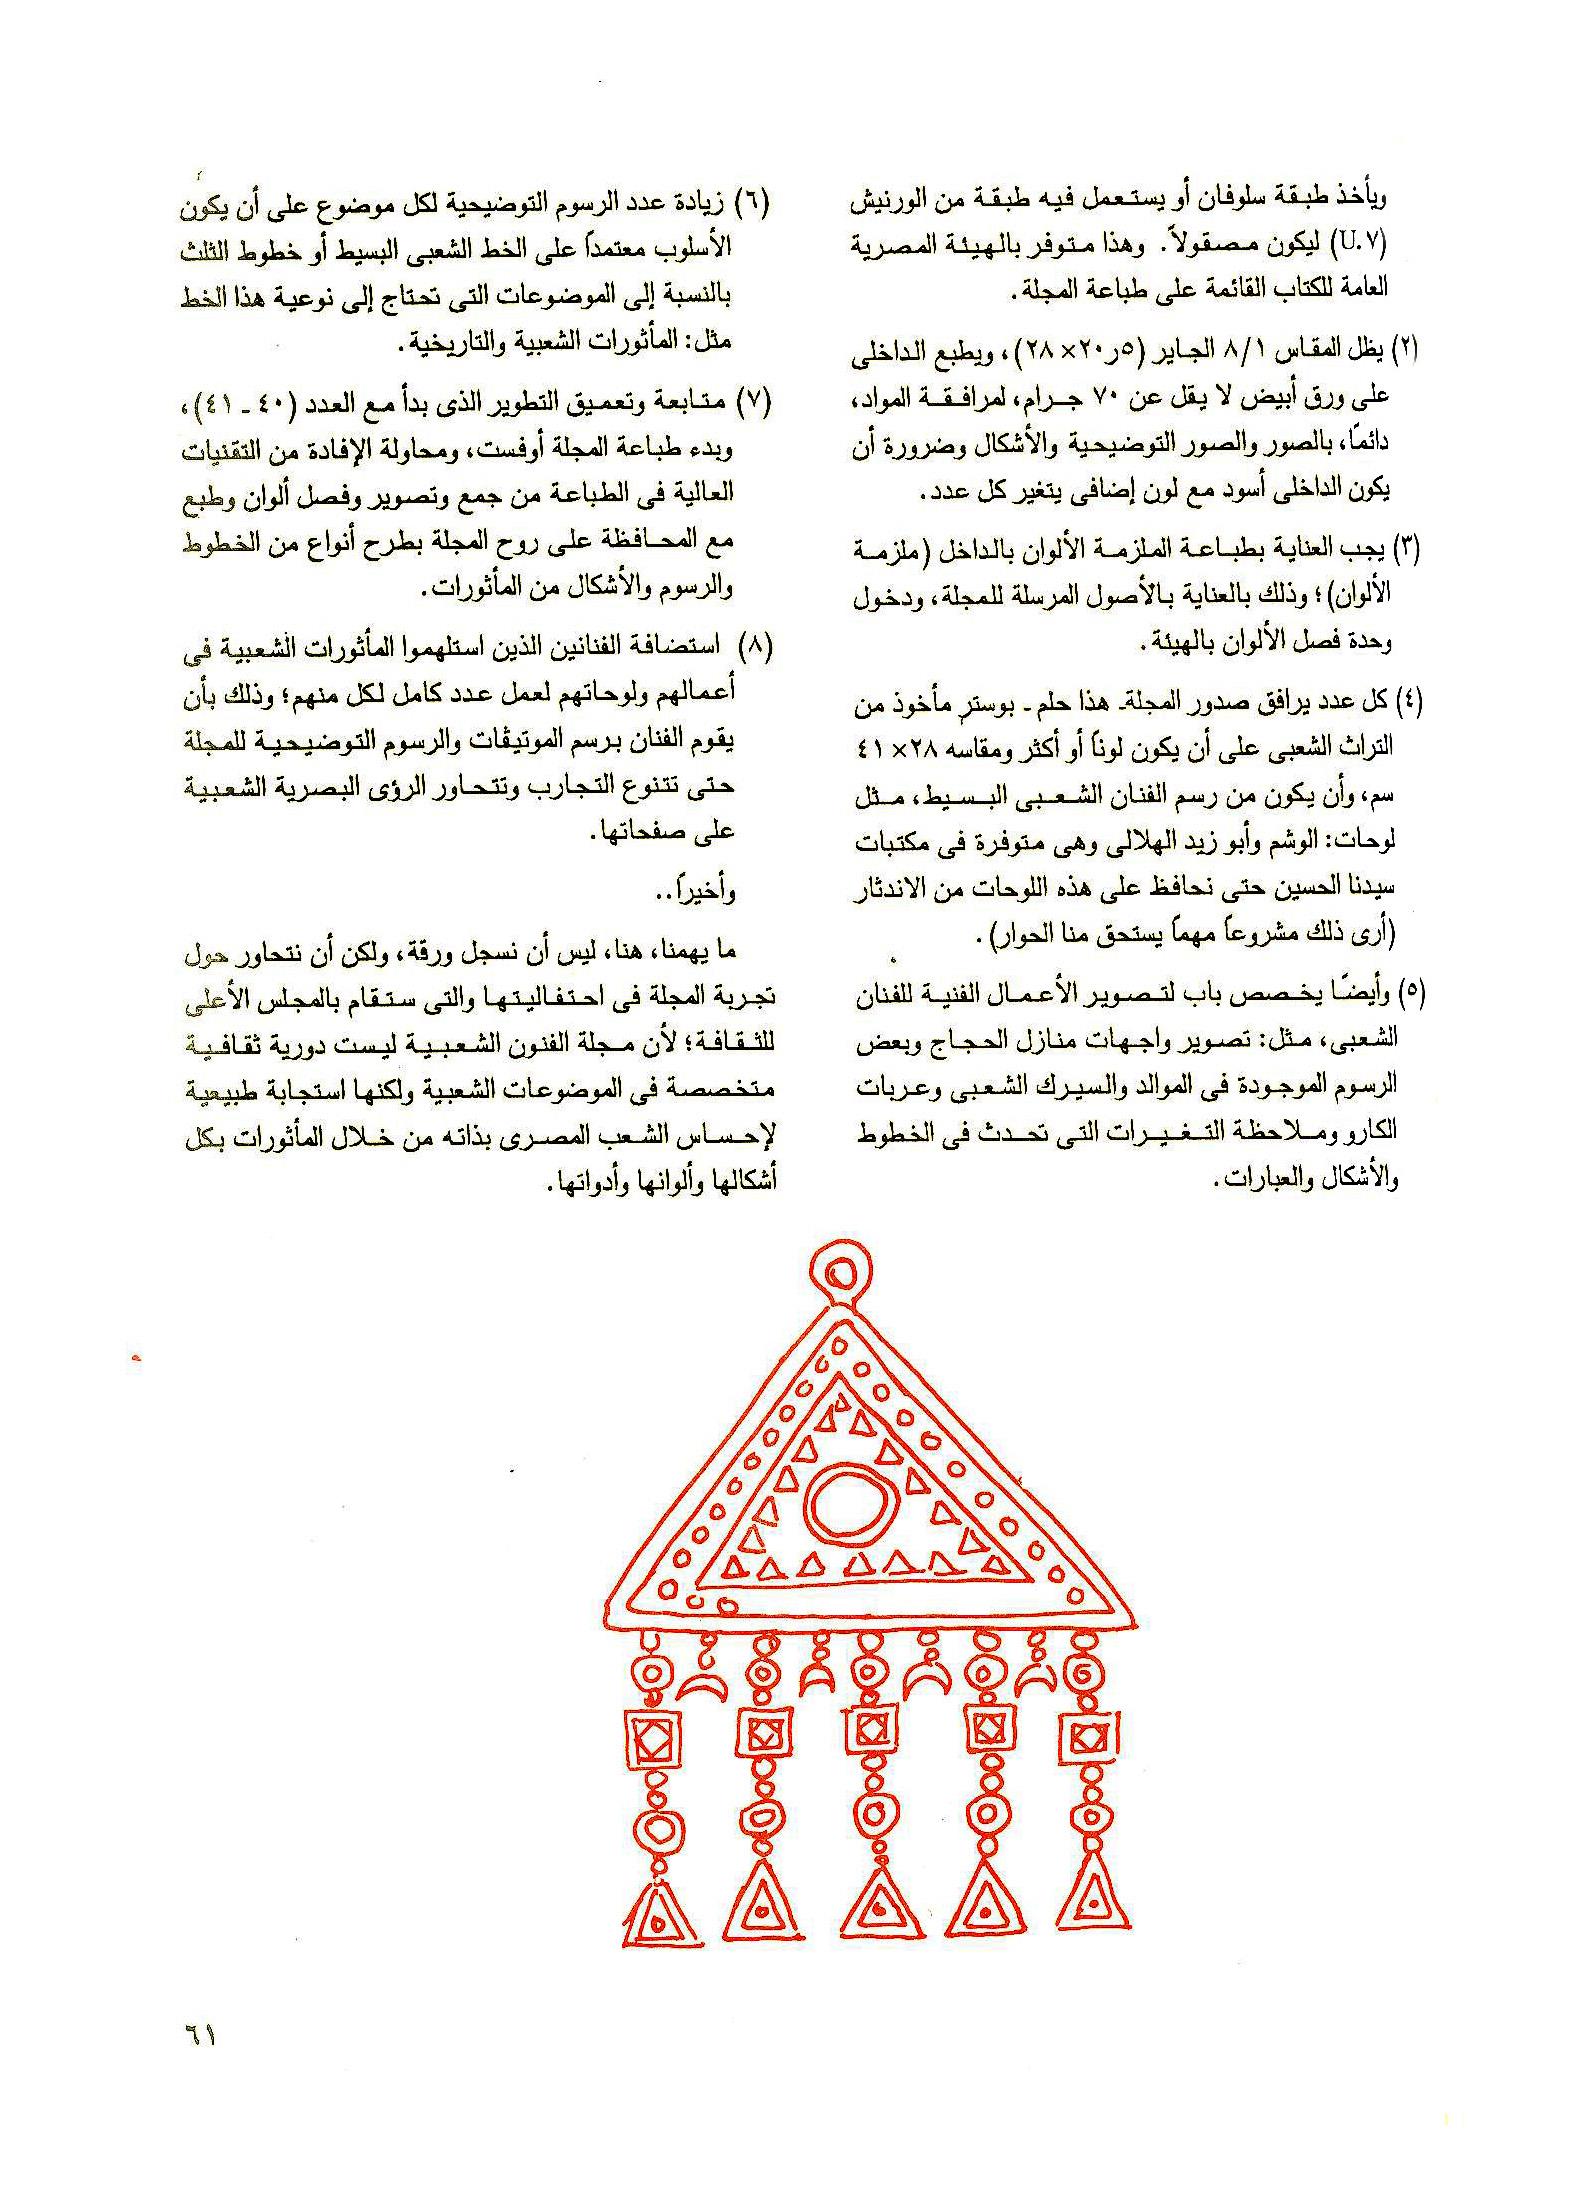 ويأخذ طبقة سلوفان أو يستعمل فيه طبقة من الورنيش
(U.٧) ليكون مصقولاً. وهذا متوفر بالهيئة المصرية
العامة للكتاب القائمة على طباعة المجلة.
(٢) يظل المقاس ٨/١ الجاير (٥ر٢٠×٢٨)، ويطبع الداخلى
على ورق أبيض لا يقل عن ٧٠ جرام، لمرافقة المواد،
دائمًا، بالصور والصور التوضيحية والأشكال وضرورة أن
يكون الداخلى أسود مع لون إضافى يتغير كل عدد.
(٣) يجب العناية بطباعة الملزمة الألوان بالداخل (ملزمة
الألوان)؛ وذلك بالعناية بالأصول المرسلة للمجلة، ودخول
وحدة فصل الألوان بالهيئة.
(٤) كل عدد يرافق صدور المجلة- هذا حلم- بوستر مأخوذ من
التراث الشعبى على أن يكون لوناً أو أكثر ومقاسه ٢٨×٤١
سم، وأن يكون من رسم الفنان الشعبى البسيط، مثل
لوحات: الوشم وأبو زيد الهلالى وهى متوفرة فى مكتبات
سيدنا الحسين حتى نحافظ على هذه اللوحات من الاندثار
(أرى ذلك مشروعاً مهماً يستحق منا الحوار).
(٥) وأيضًا يخصص باب لتصوير الأعمال الفنية للفنان
الشعبى، مثل: تصوير واجهات منازل الحجاج وبعض
الرسوم الموجودة فى الموالد والسيرك الشعبى وعربات
الكارو وملاحظة التغيرات التى تحدث فى الخطوط
والأشكال والعبارات.
(٦) زيادة عدد الرسوم التوضيحية لكل موضوع على أن يكون
الأسلوب معتمداً على الخط الشعبى البسيط أو خطوط الثلث
بالنسبة إلى الموضوعات التى تحتاج إلى نوعية هذا الخط
مثل: المأثورات الشعبية والتاريخية.
(٧) متابعة وتعميق التطوير الذى بدأ مع العدد (٤٠ - ٤١)،
وبدء طباعة المجلة أوفست، ومحاولة الإفادة من التقنيات
العالية فى الطباعة من جمع وتصوير وفصل ألوان وطبع
مع المحافظة على روح المجلة بطرح أنواع من الخطوط
والرسوم والأشكال من المأثورات.
(٨) استضافة الفنانين الذين استلهموا المأثورات الشعبية فى
أعمالهم ولوحاتهم لعمل عدد كامل لكل منهم؛ وذلك بأن
يقوم الفنان برسم الموتيڤات والرسوم التوضيحية للمجلة
حتى تتنوع التجارب وتتحاور الرؤى البصرية الشعبية
على صفحاتها.
وأخيراً..
ما يهمنا، هنا، ليس أن نسجل ورقة، ولكن أن نتحاور حول
تجربة المجلة فى احتفاليتها والتى ستقام بالمجلس الأعلى
للثقافة؛ لأن مجلة الفنون الشعبية ليست دورية ثقافية
متخصصة فى الموضوعات الشعبية ولكنها استجابة طبيعية
لإحساس الشعب المصرى بذاته من خلال المأثورات بكل
أشكالها وألوانها وأدواتها.
٦١